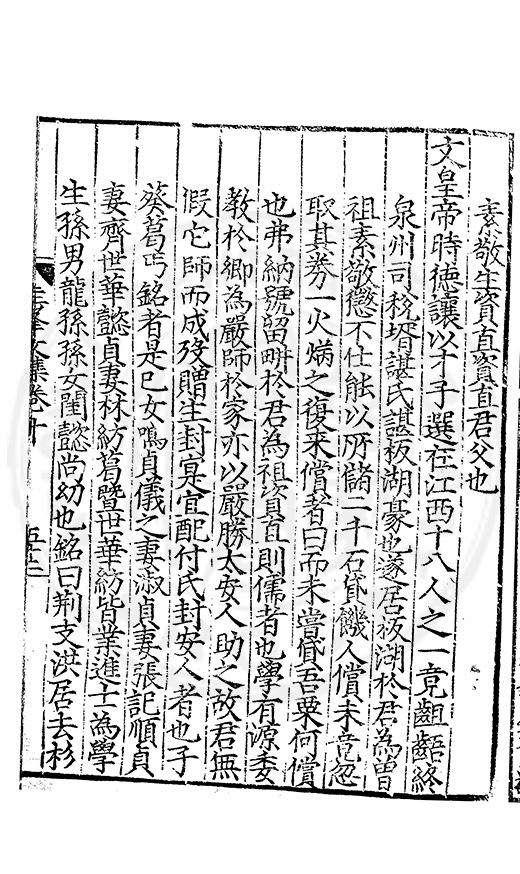 素敬生資直資直君父也
文皇帝時德讓以才子選在江西十八人之一竟齟齬終
泉州司稅壻諶氏諶板湖豪也遂居板湖於君為曾
祖素敬懲不仕能以所儲二千石貸饑人償未竟忽
取其券一火焫之復来償者曰而未嘗貸吾粟何償
也弗納號留畊於君為祖資直則儒者也學有源委
教於鄉為嚴師於家亦以嚴勝太安人助之故君無
假它師而成歿贈生封寔宜配付氏封安人者也子
葵葛丐銘者是已女鳴貞儀之妻淑貞妻張記順貞
妻齊世華懿貞妻林紡葛暨世華紡皆業進士為學
生孫男龍孫孫女閨懿尚幼也銘曰荆支洪居去杉
文集卷十